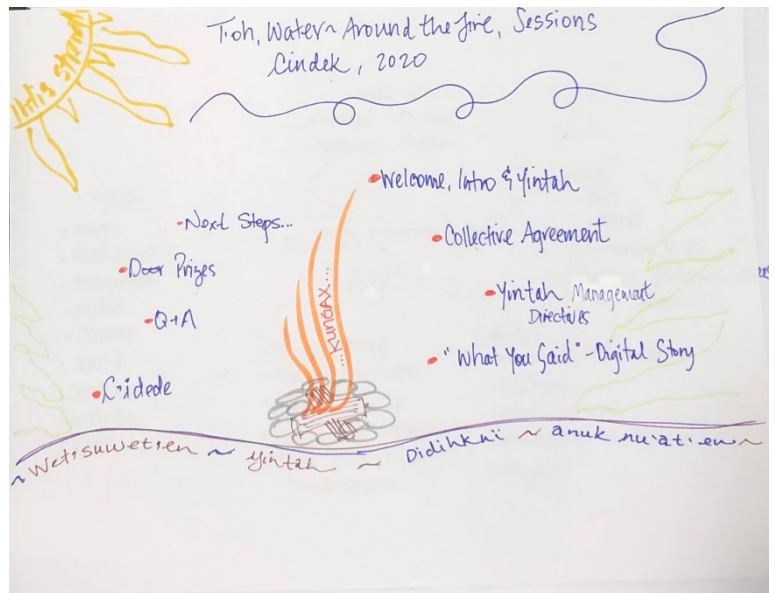 T'oh, Water~ Around the fire, Sessions
Cindek, 2020
•Welcome, Intro & Yintah
•Collective Agreement
•Yintah Management
Directives
•"What You Said" - Digital Story
•C'idede
•Q+A
•Door Prizes
-Next Steps...
...KUNGAX...
~ Wet'suwet'en ~ Yintah ~ Didihkni ~ anuk nu'at'en ~